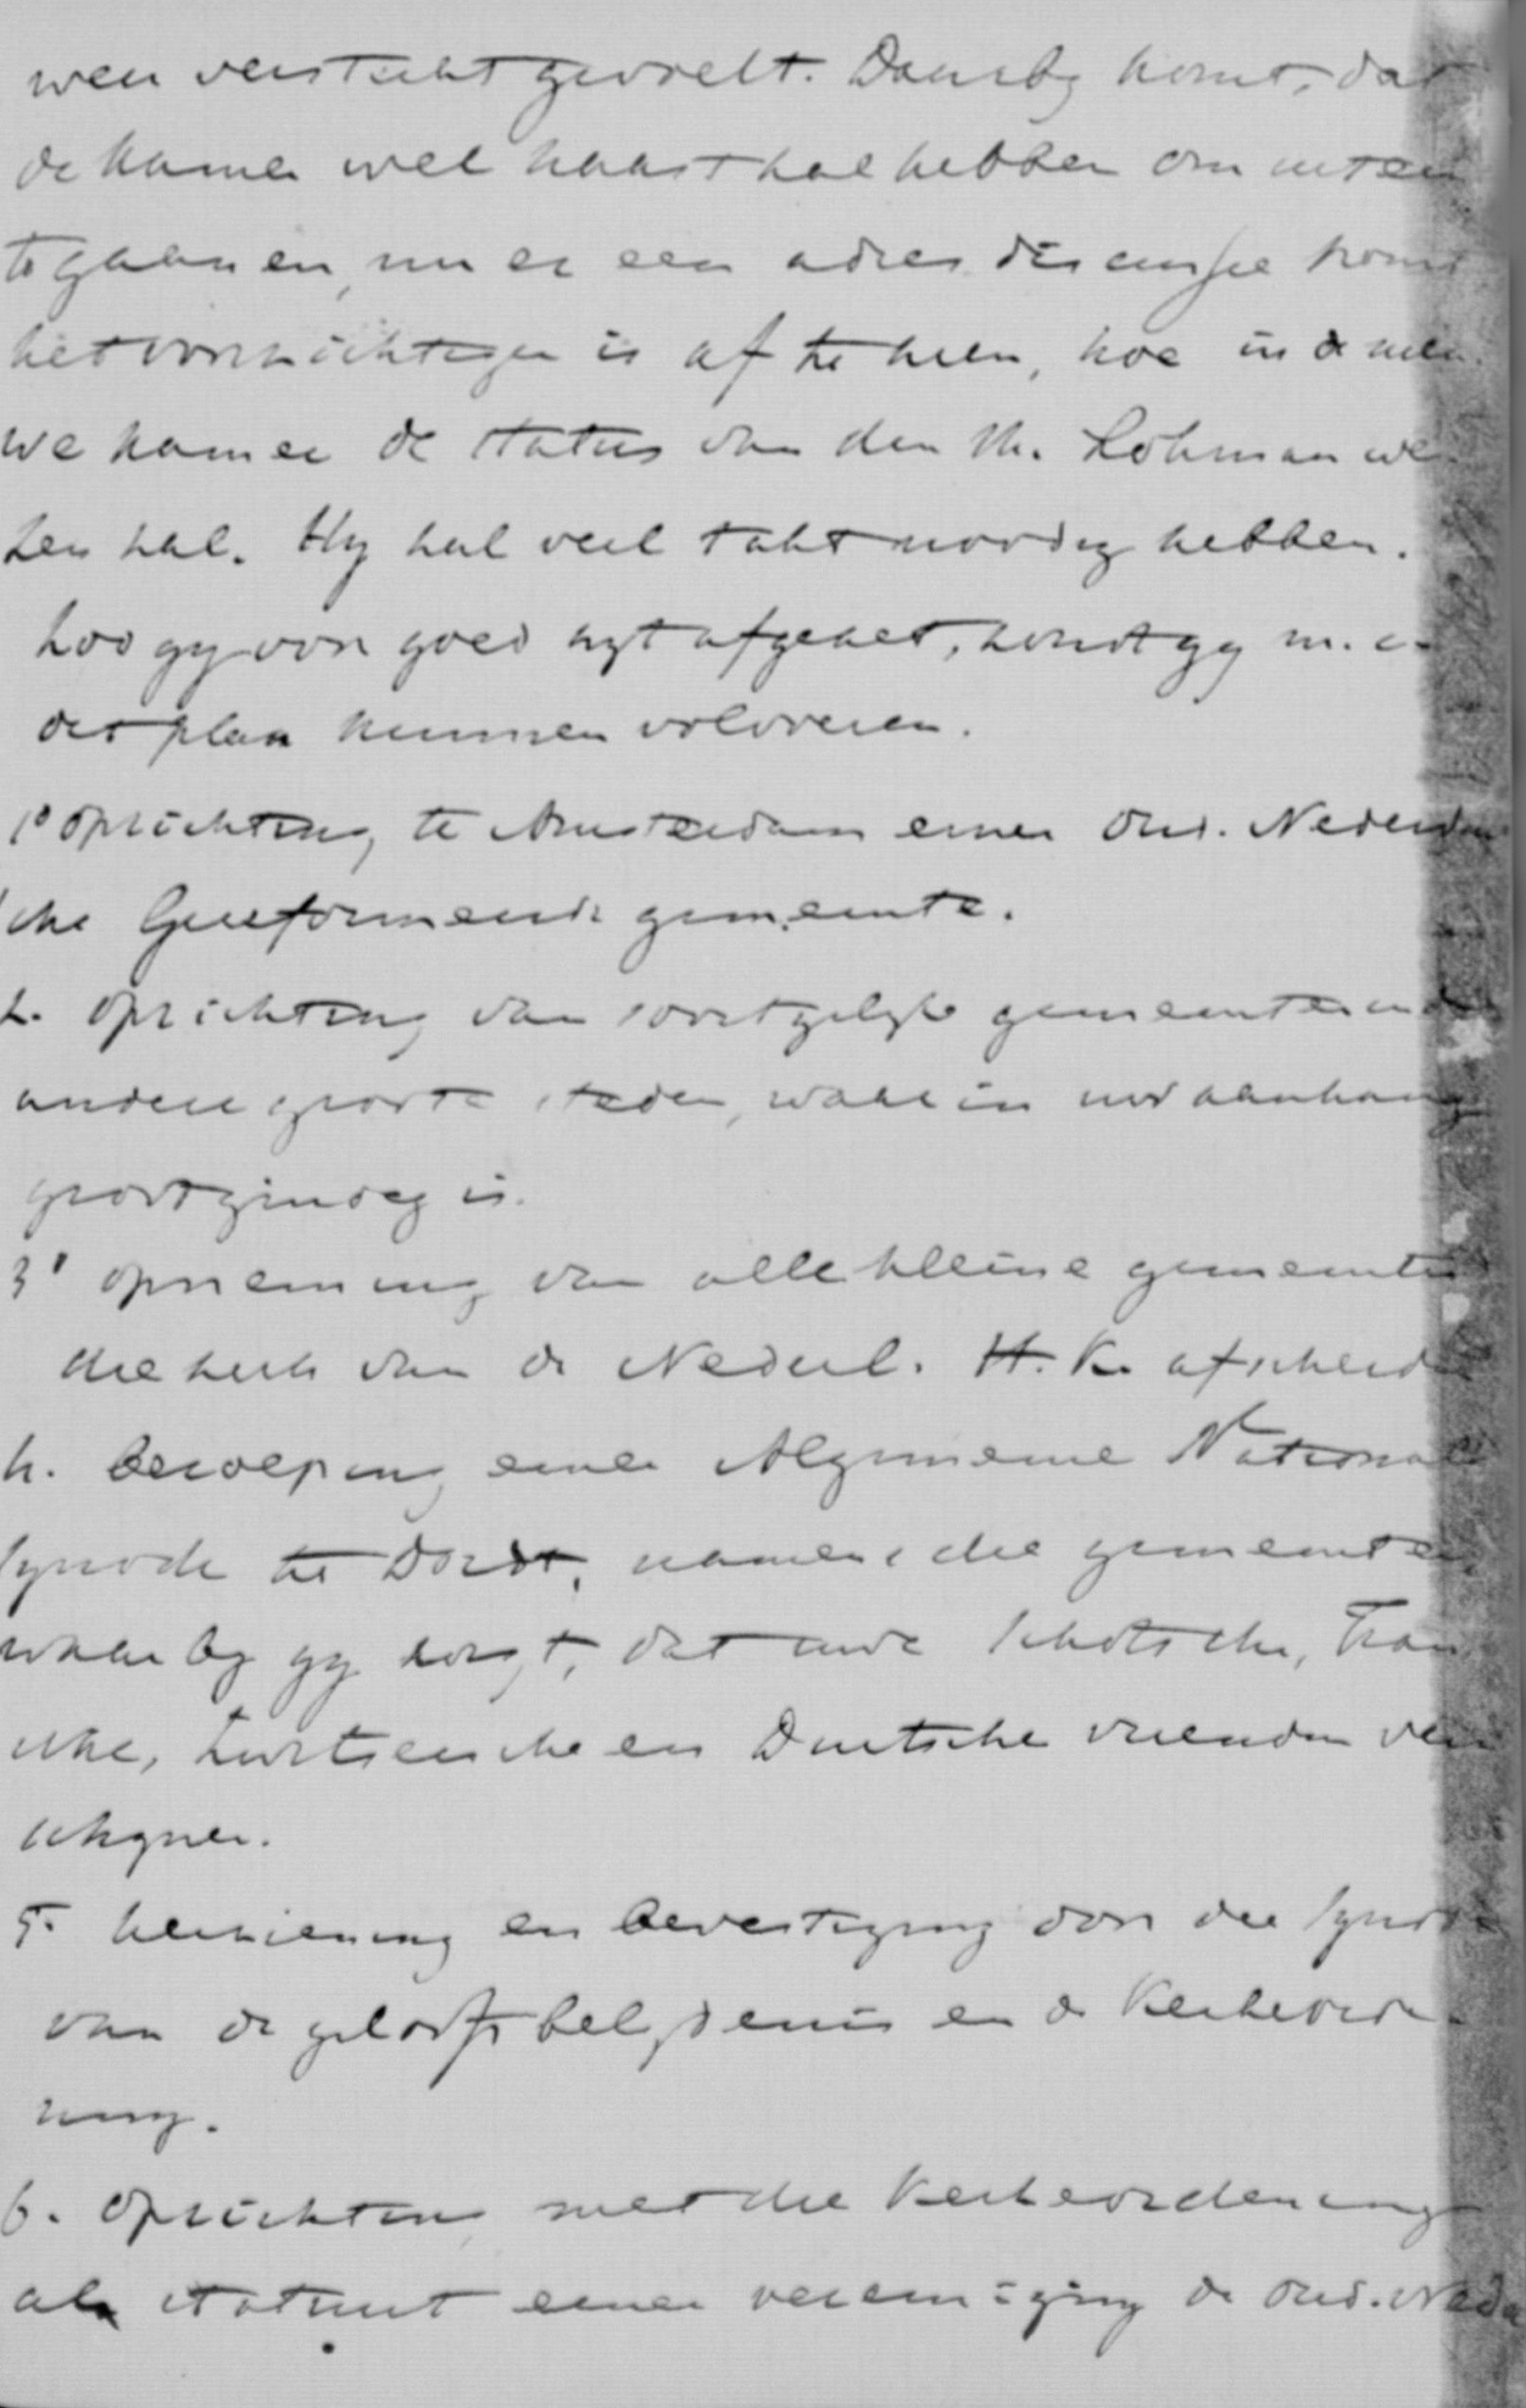 wen versterkt gevoelt. Daarby komt, dat
de kamer wel haast zal hebben om uiteen
te gaan en, nu er een adres discussie komt
het voorzichtiger is af te zien, hoe in de nieu-
we kamer de status van den Hr. Lohman we-
zen zal. Hy zal veel takt noodig hebben.
Zoo gy voor goed zyt afgezet, zoudt gy m. i.
dit plan kunnen volvoeren.
1° oprichting te Amsterdam eener Oud. Nederdui
sche Gereformeerde gemeente.
2. oprichting van soortgelyke gemeenten in de
andere groote steden, waar in uw aanhang
groot genoeg is.
3° opneming van alle kleine gemeenten
die zich van de Nederl. H. K. afscheid
4. beroeping eener Algemeene Nationale
Synode te Dordt, namens die gemeenten
waar by gy zorgt, dat uwe Schotsche, Fran
sche, Zwitsersche en Duitsche vrienden ver
schynen.
5. herziening en bevestiging door die Synode
van de geloofsbelydenis en de kerkeorde-
ning.
6. Oprichting met die kerkeordening
als statuut eener vereeniging de Oud. Neder